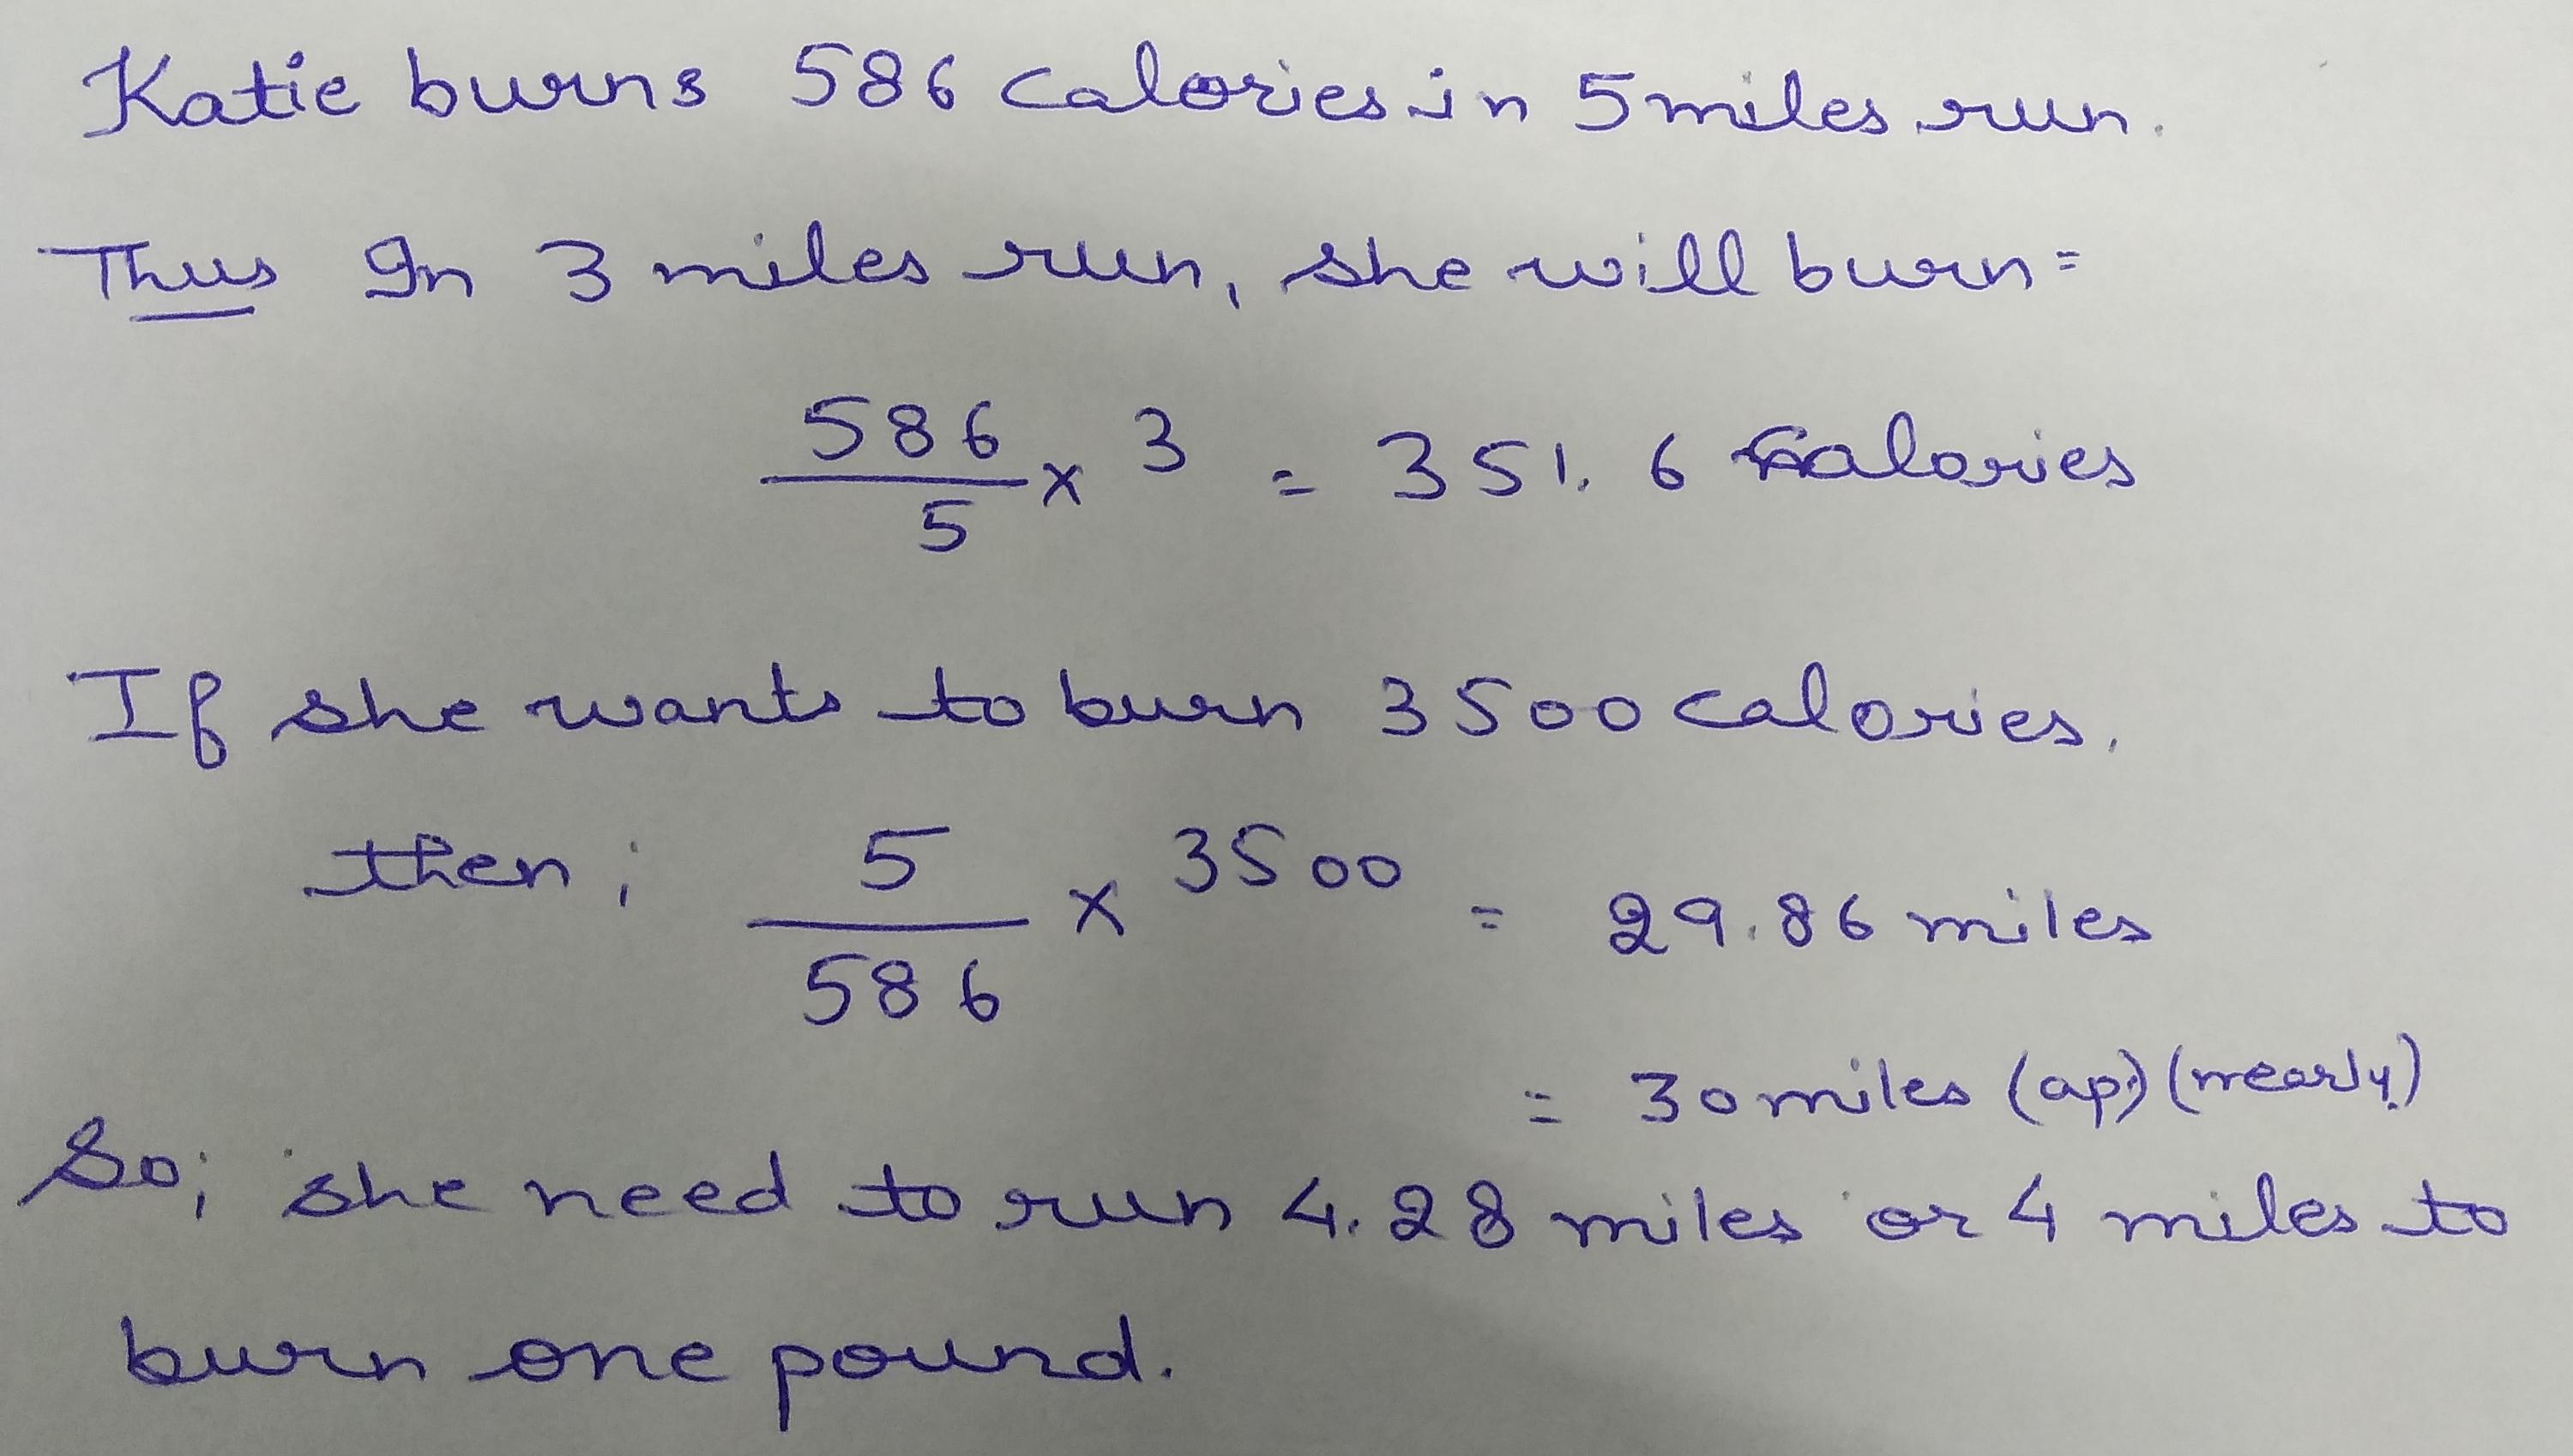 Katie burns 586 calories in 5 miles run.
Thus In 3 miles run, she will burn =
586/5 x 3 = 351.6 calories
If she wants to burn 3500 calories.
then; 5/586 x 3500 = 29.86 miles
= 30 miles (ap.) (nearly)
So; she need to run 4.28 miles or 4 miles to
burn one pound.